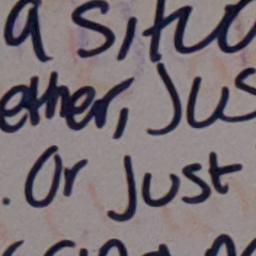 a situ
ether, Jus
. Or Just